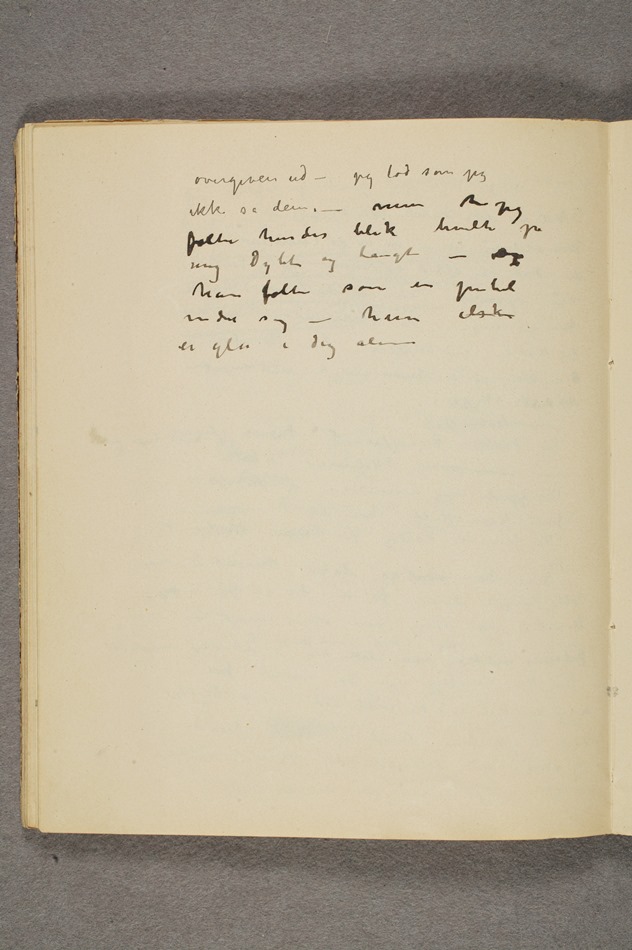 overgiven ud — jeg lod som jeg
ikke så dem. — men jeg
følte hendes blik hvilte på
mig dybt og langt —
han følte som en
inden sig — hun elsker
er glad i dig alene